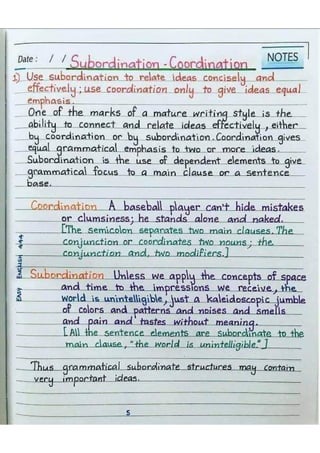 Date: / / Subordination - Coordination NOTES
1) Use subordination to relate ideas concisely and
effectively; use coordination only to give ideas equal
emphasis.
One of the marks of a mature writing style is the
ability to connect and relate ideas effectively, either
by coordination or by subordination. Coordination gives
equal grammatical emphasis to two or more ideas.
Subordination is the use of dependent elements to give
grammatical focus to a main clause or a sentence
base.
Coordination A baseball player can't hide mistakes
or clumsiness; he stands alone and naked.
[The semicolon separates two main clauses. The
conjunction or coordinates two nouns; the
conjunction and, two modifiers.]
Subordination Unless we apply the concepts of space
and time to the impressions we receive, the
world is unintelligible, just a kaleidoscopic jumble
of colors and patterns and noises and smells
and pain and tastes without meaning.
[All the sentence elements are subordinate to the
main clause, "the world is unintelligible."]
Thus grammatical subordinate structures may contain
very important ideas.
5
EASY ENGLISH